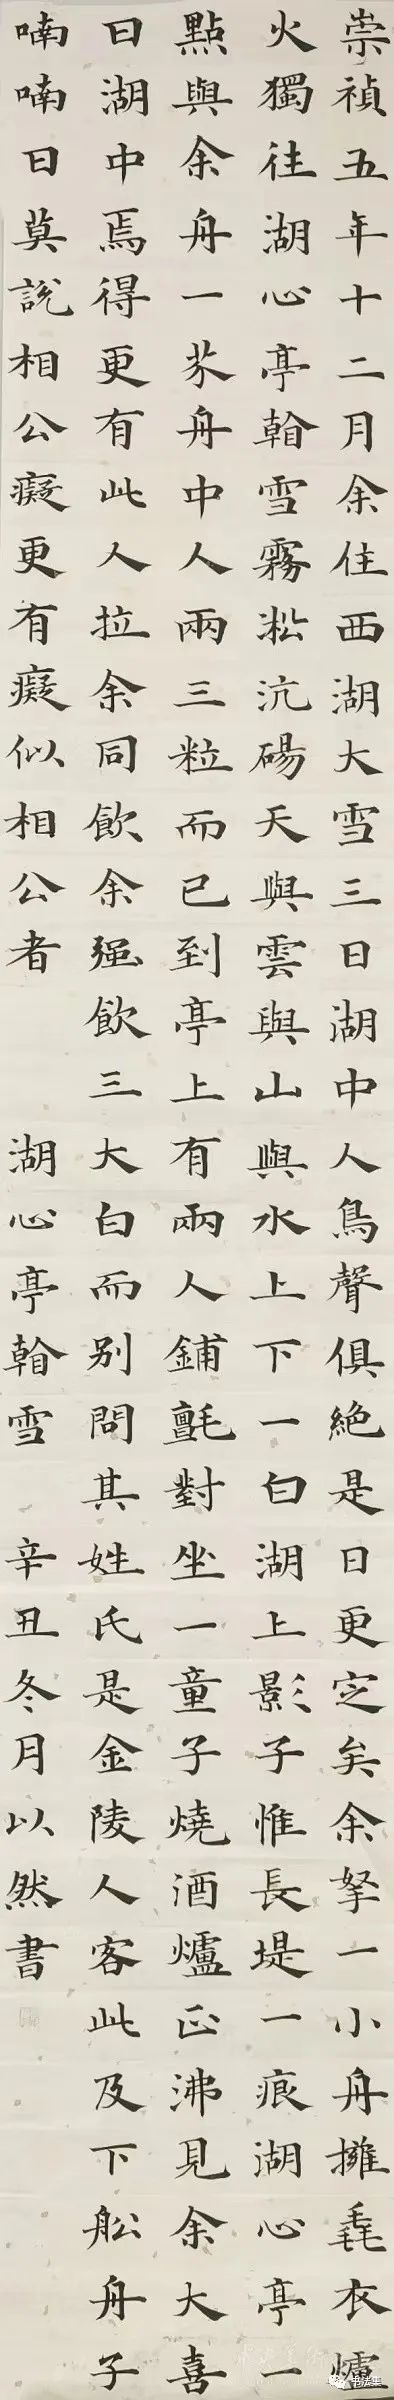 崇禎五年十二月余住西湖大雪三日湖中人鳥聲俱絕是日更定矣余拏一小舟擁毳衣爐
火獨往湖心亭看雪霧淞沆碭天與雲與山與水上下一白湖上影子惟長堤一痕湖心亭一
點與余舟一芥舟中人兩三粒而已到亭上有兩人鋪氈對坐一童子燒酒爐正沸見余大喜
曰湖中焉得更有此人拉余同飲余强飲三大白而别問其姓氏是金陵人客此及下舩舟子
喃喃曰莫說相公癡更有癡似相公者 湖心亭看雪 辛丑冬月以然書
书法集